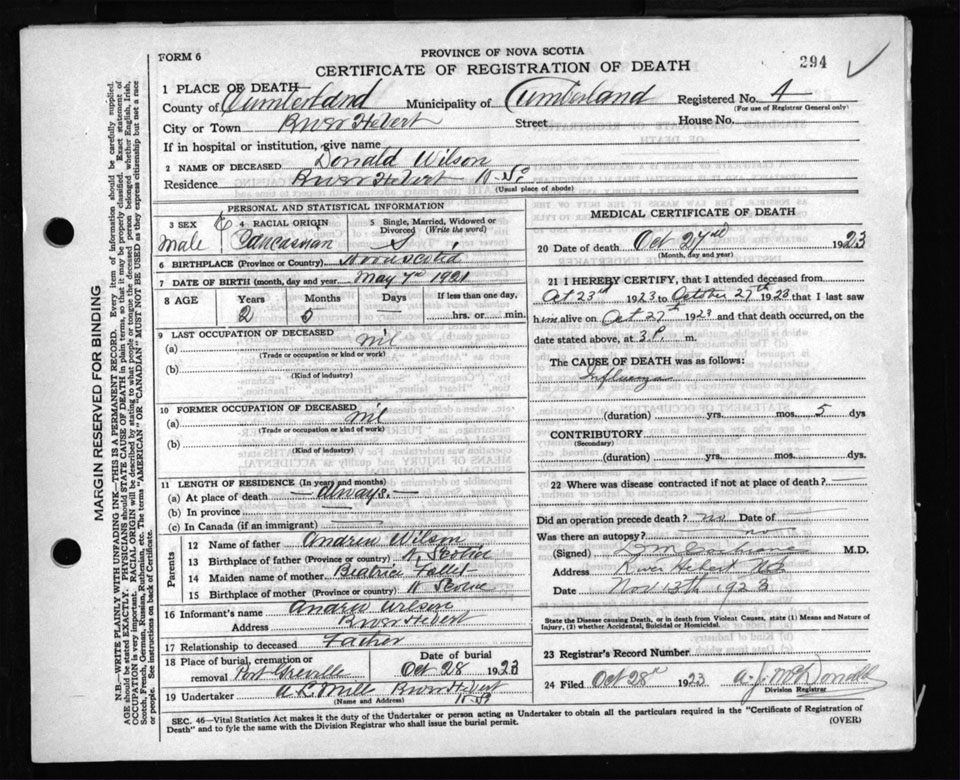 FORM 6
PROVINCE OF NOVA SCOTIA
CERTIFICATE OF REGISTRATION OF DEATH
294
1 PLACE OF DEATH—
County of Cumberland Municipality of Cumberland Registered No. 4
(For use of Registrar General only)
City or Town River Hebert Street House No.
If in hospital or institution, give name
2 NAME OF DECEASED Donald Wilson
Residence River Hebert N.S.
(Usual place of abode)
PERSONAL AND STATISTICAL INFORMATION
3 SEX male
4 RACIAL ORIGIN Caucasian
5 Single, Married, Widowed or Divorced (Write the word) S
6 BIRTHPLACE (Province or Country) Nova Scotia
7 DATE OF BIRTH (month, day and year) May 7th 1921
8 AGE Years Months Days If less than one day,
2 5 — hrs. or min.
9 LAST OCCUPATION OF DECEASED
(a) nil
(Trade or occupation or kind or work)
(b)
(Kind of industry)
10 FORMER OCCUPATION OF DECEASED
(a) nil
(Trade or occupation or kind of work)
(b)
(Kind of industry)
11 LENGTH OF RESIDENCE (In years and months)
(a) At place of death — always. —
(b) In province
(c) In Canada (if an immigrant)
Parents
12 Name of father Andrew Wilson
13 Birthplace of father (Province or country) N. Scotia
14 Maiden name of mother Beatrice
15 Birthplace of mother (Province or country) N Scotia
16 Informant's name Andrew Wilson
Address River Hebert
17 Relationship to deceased Father
18 Place of burial, cremation or removal Port Greville
Date of burial Oct 28 1923
19 Undertaker River Hebert N.S.
(Name and Address)
MEDICAL CERTIFICATE OF DEATH
20 Date of death Oct 27 1923
(Month, day and year)
21 I HEREBY CERTIFY, that I attended deceased from
Oct 23rd 1923 to October 27th 1923 that I last saw
him alive on Oct 27th 1923 and that death occurred, on the
date stated above, at 3 P. m.
The CAUSE OF DEATH was as follows:
Influenza
(duration) yrs. mos. 5 dys
CONTRIBUTORY
(Secondary)
(duration) yrs. mos. dys
22 Where was disease contracted if not at place of death?
Did an operation precede death? no Date of
Was there an autopsy?
(Signed) M.D.
Address River Hebert NS
Date Nov 13th 1923
State the Disease causing Death, or in death from Violent Causes, state (1) Means and Nature of Injury, (2) whether Accidental, Suicidal or Homicidal.
23 Registrar's Record Number
24 Filed Oct 28th 1923 A. J. McDonald
Division Registrar
SEC. 46—Vital Statistics Act makes it the duty of the Undertaker or person acting as Undertaker to obtain all the particulars required in the "Certificate of Registration of
Death" and to fyle the same with the Division Registrar who shall issue the burial permit.
(OVER)
MARGIN RESERVED FOR BINDING
N.B.—WRITE PLAINLY WITH UNFADING INK—THIS IS A PERMANENT RECORD. Every item of information should be carefully supplied.
AGE should be stated EXACTLY. PHYSICIANS should STATE CAUSE OF DEATH in plain terms, so that it may be properly classified. Exact statement of
OCCUPATION is very important. RACIAL ORIGIN will be described by stating to what people or tongue the deceased person belonged whether English, Irish,
Scotch, French, German, Russian, Ruthenian, etc. The terms "AMERICAN" OR "CANADIAN" MUST NOT BE USED as they express citizenship but not a race
or people. See instructions on back of Certificate.